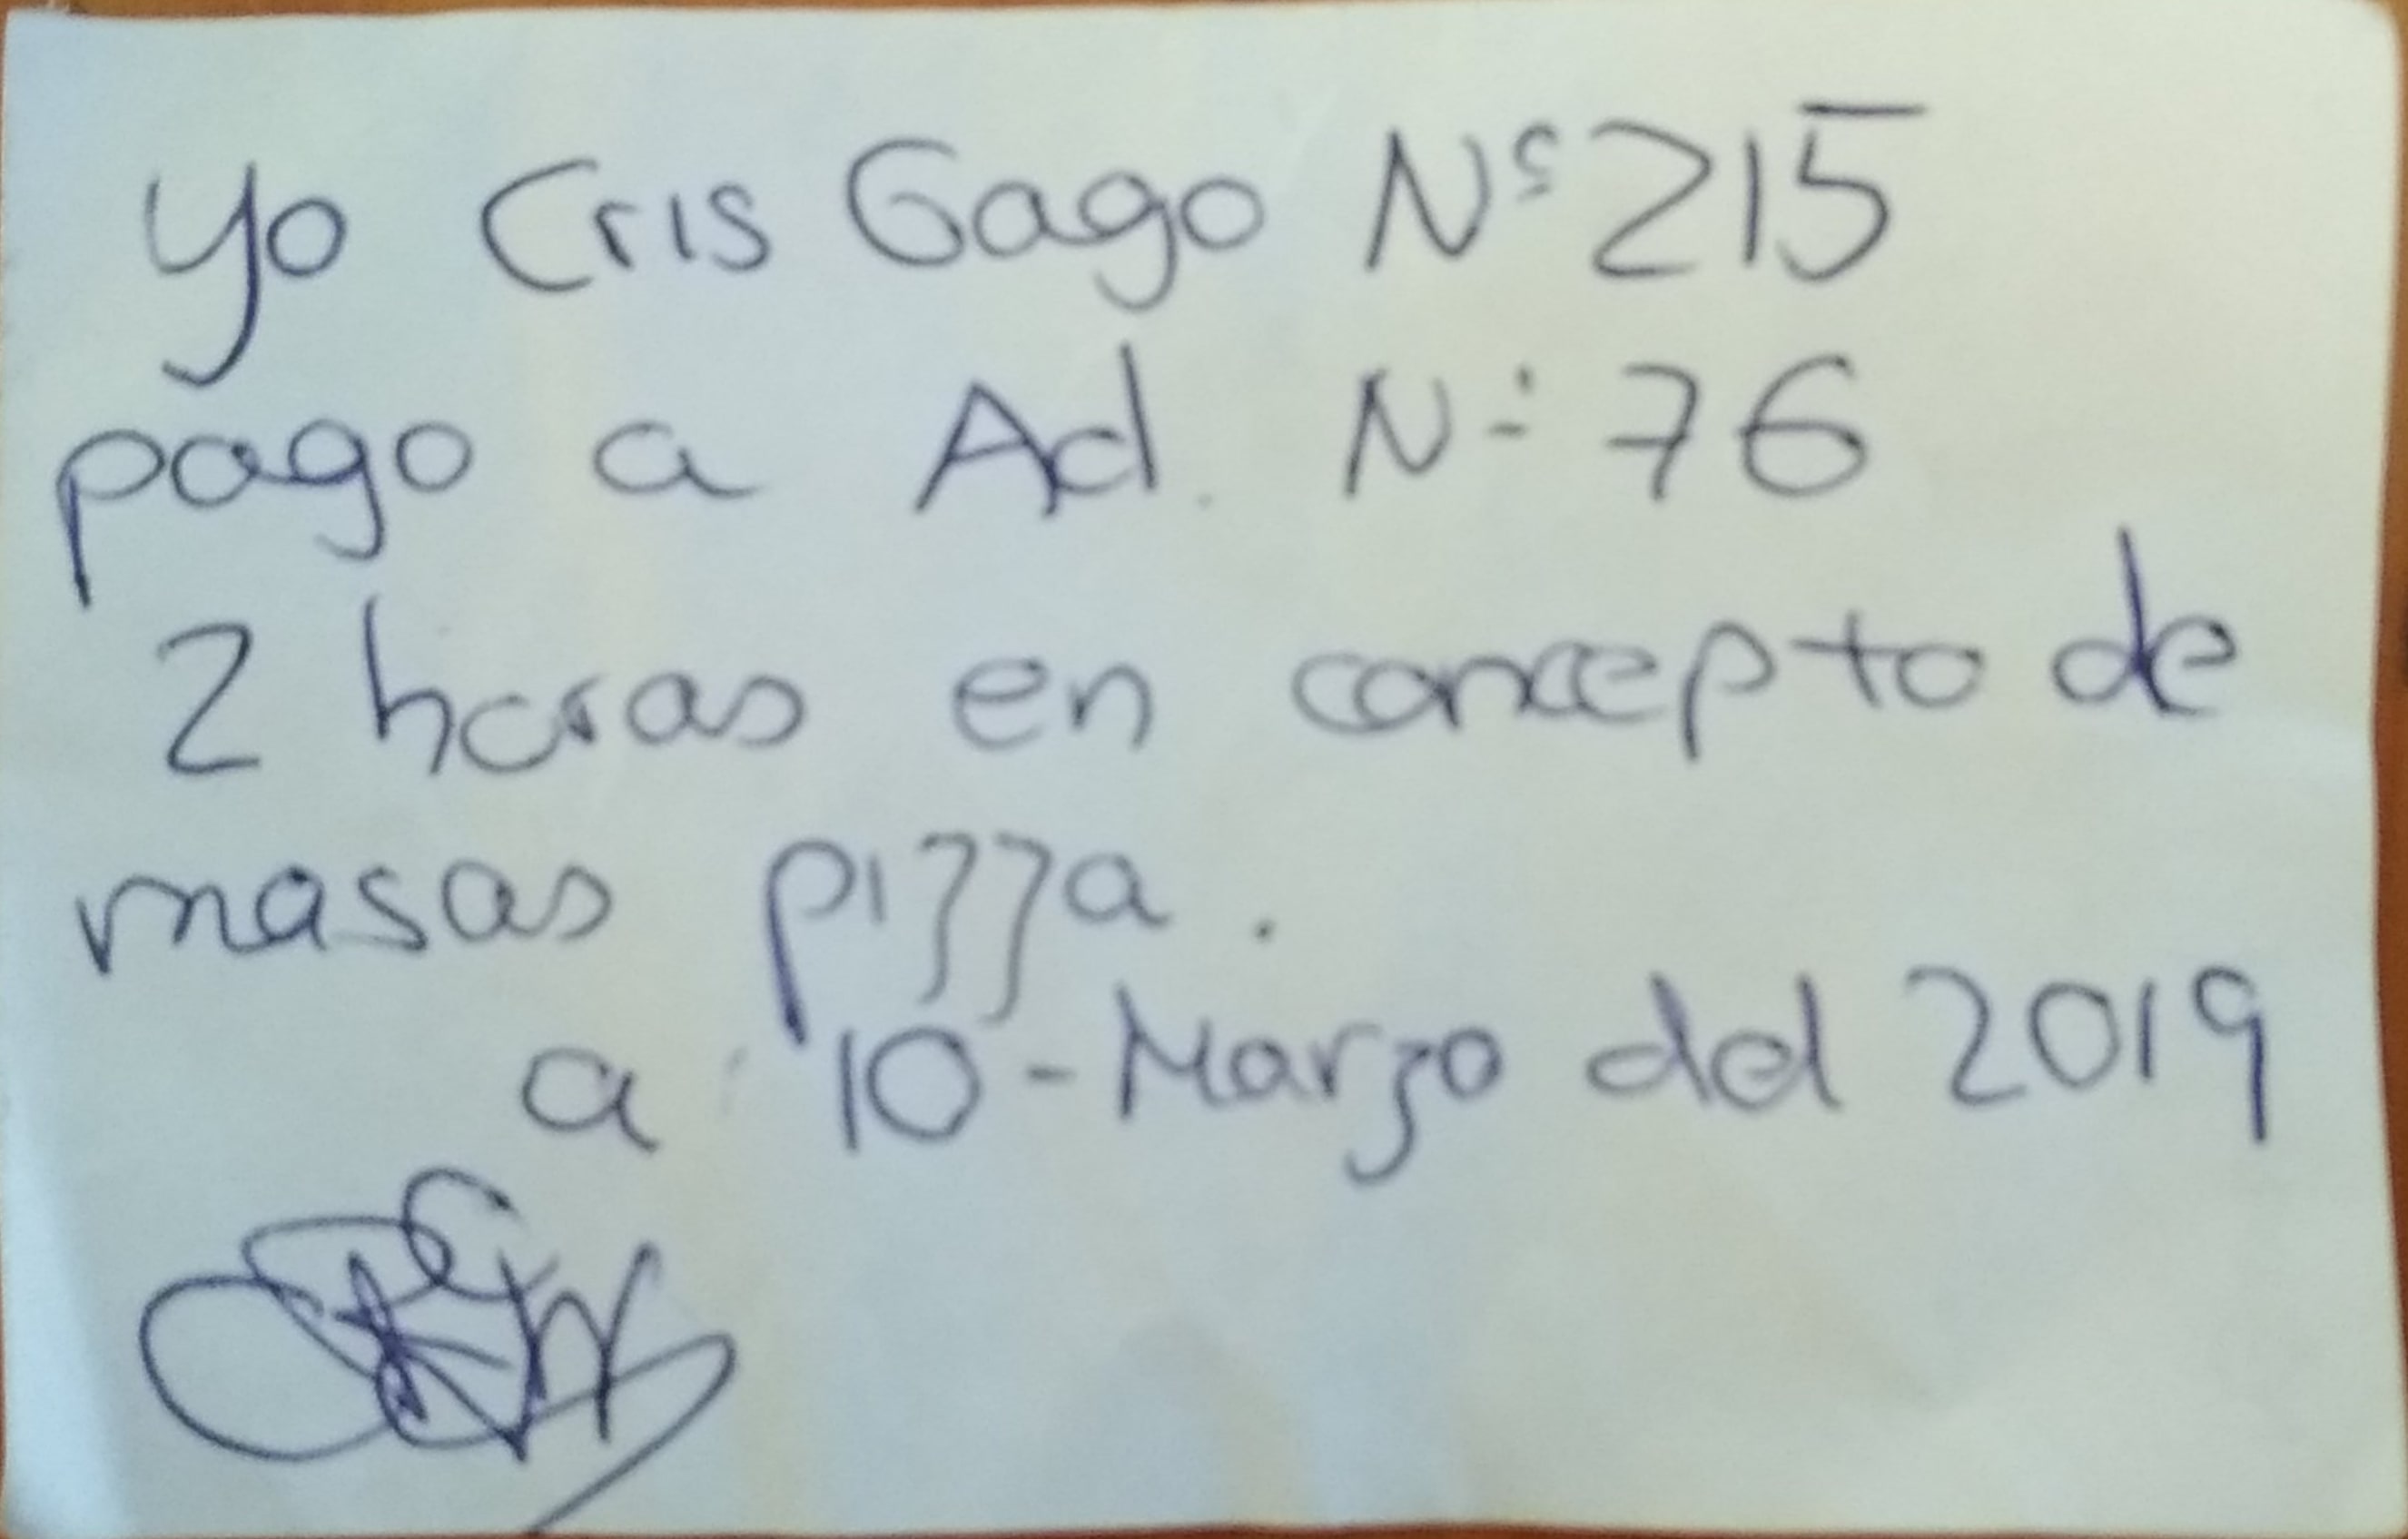 Yo Cris Gago Nº 215
pago a Ad. Nº 76
2 horas en concepto de
masas pizza.
a 10-Marzo del 2019